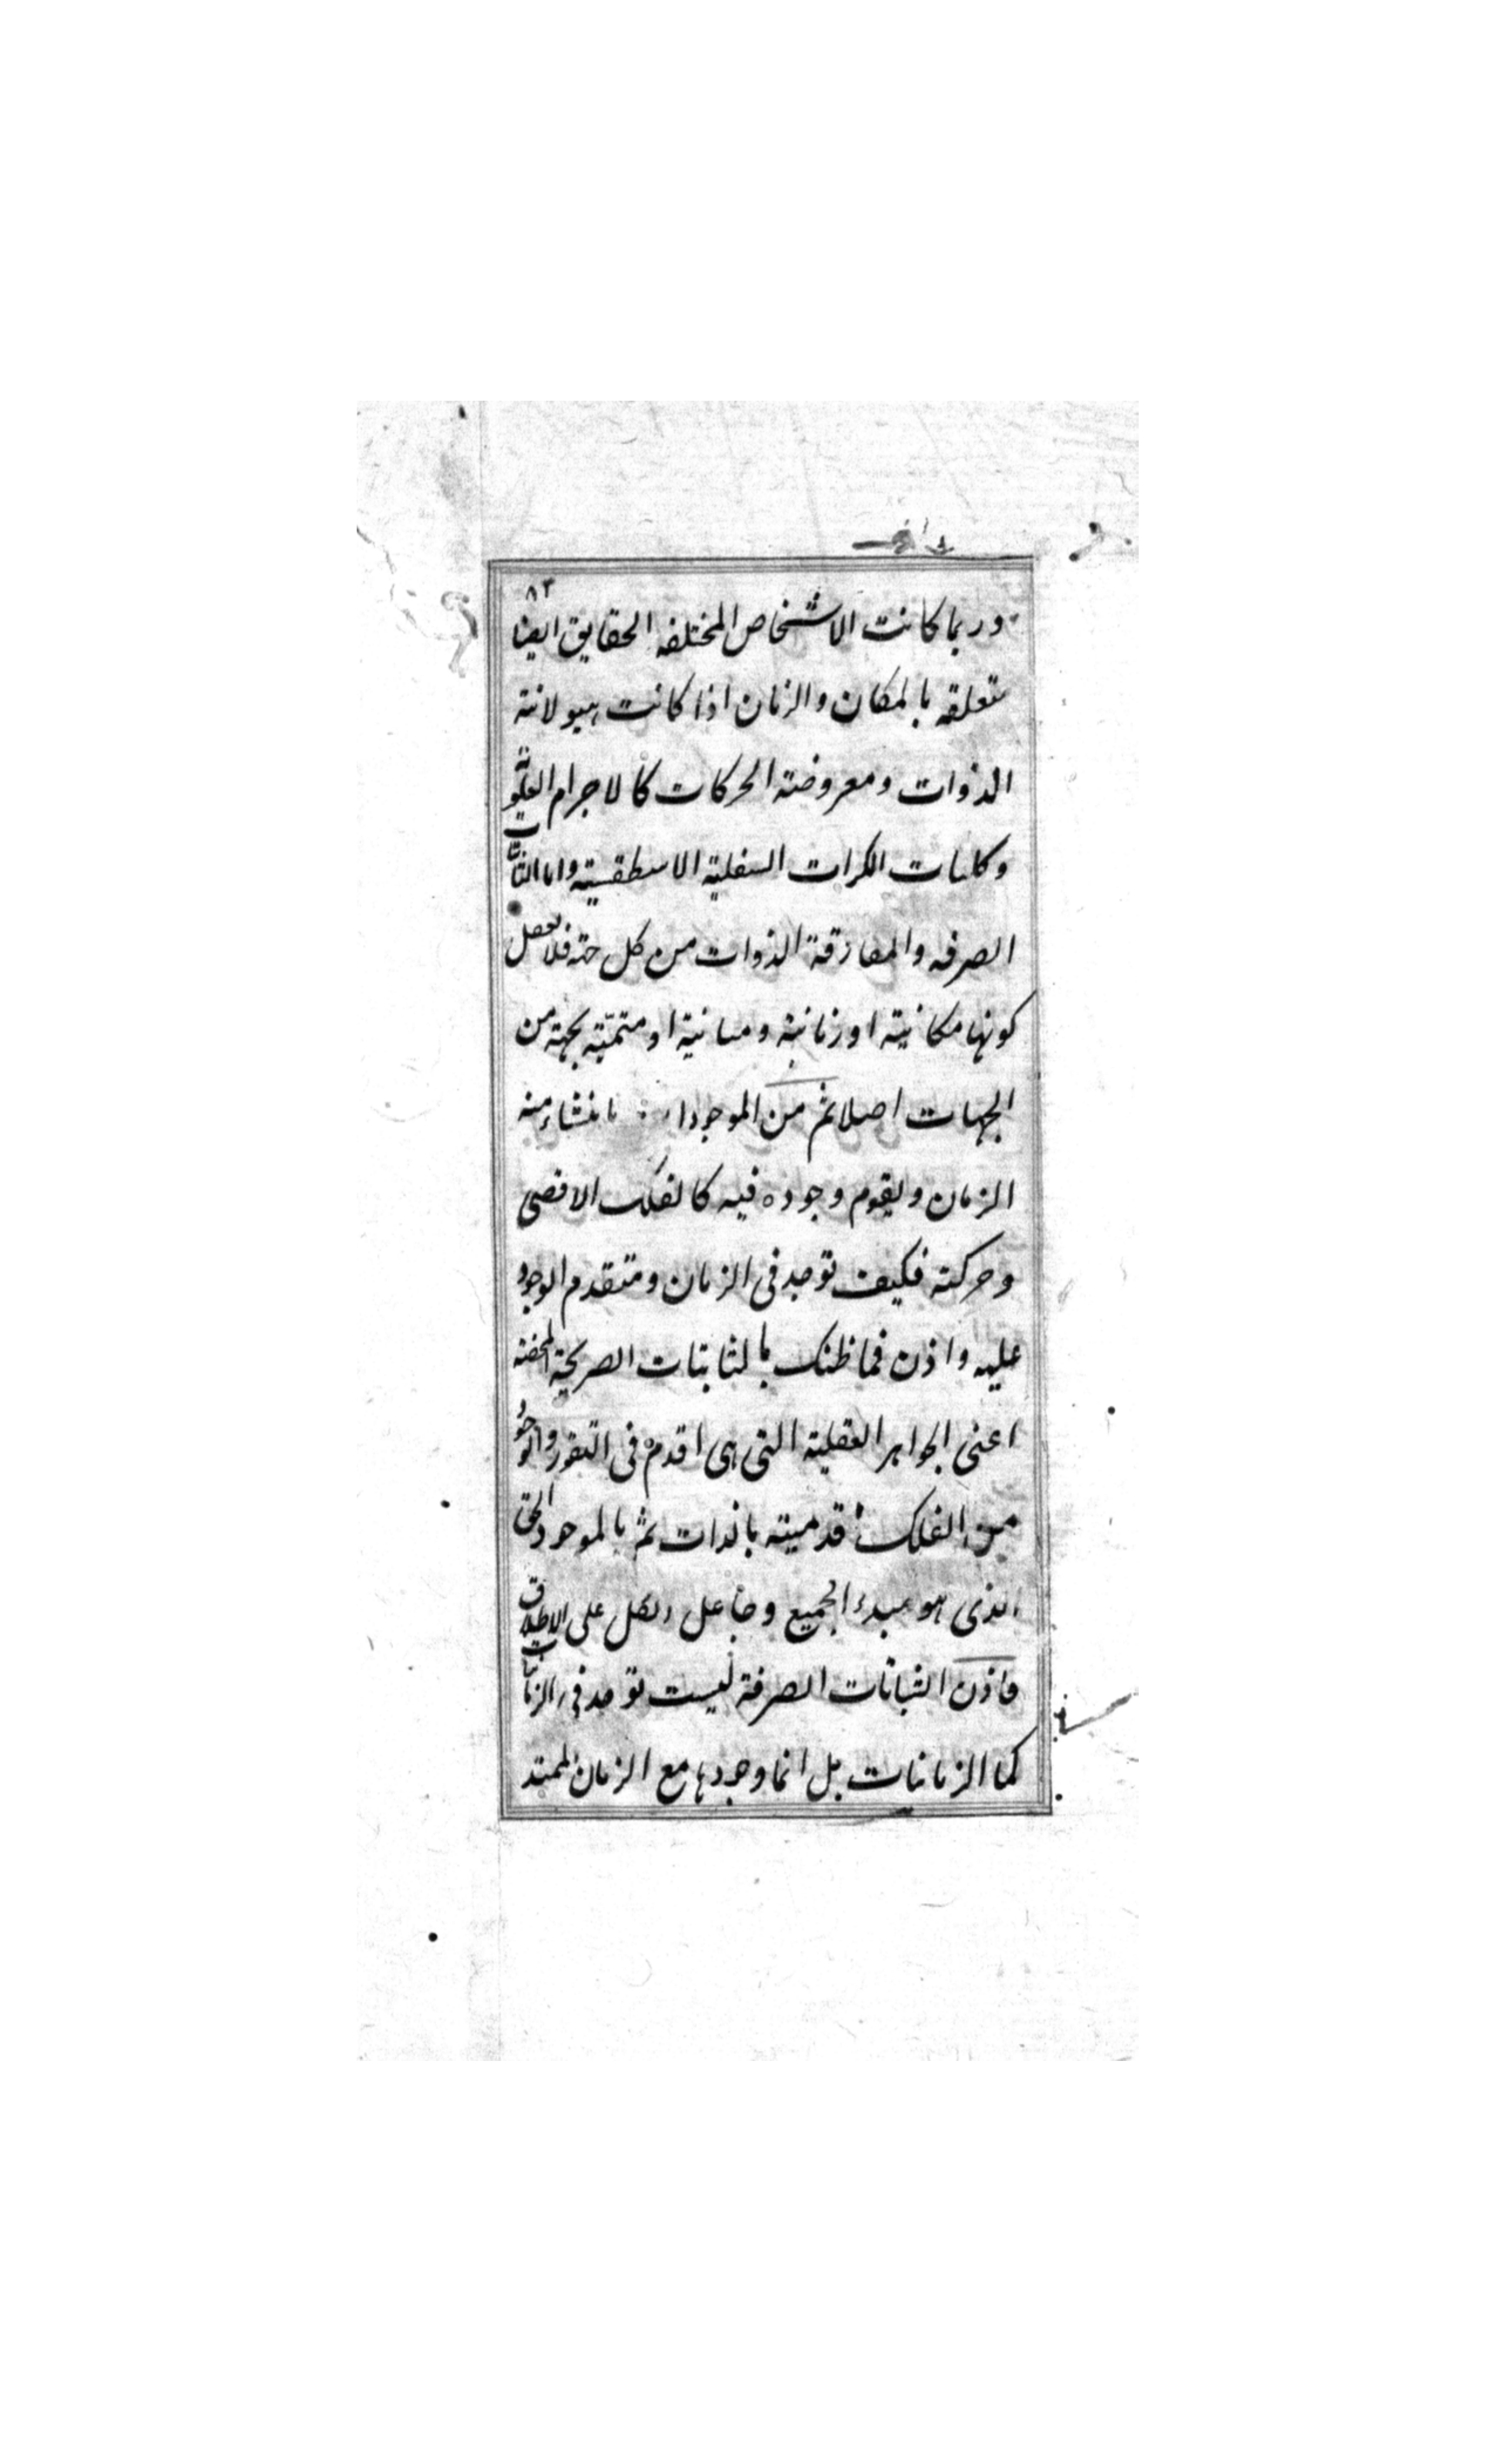 ٨٣
وربما كانت الاشخاص المختلفه الحقايق ايضا
متعلقه بالمكان والزمان اذا كانت هيولانية
الذوات ومعروضة الحركات كالاجرام العلوية
وكليات الكرات السفلية الاسطقسية واما الثابتات
الصرفه والمفارقة الذوات من كل جهة فلا يعقل
كونها مكانية او زمانية ومــانية او متمتية بجهة من
الجهات اصلا ثم من الموجودات ما ينشاء منه
الزمان ويقوم وجوده فيه كالفلك الاقصى
وحركته فكيف توجد فى الزمان ومتقدم الوجود
عليه واذن فما ظنك بالثابتات الصريحة المحضة
اعنى الجواهر العقلية التى هى اقدم فى التقرر والوجود
من الفلك قدمية بالذات ثم بالموجود الحق
الذى هو مبدء الجميع وجاعل الكل على الاطلاق
فاذن الثباتات الصرفة ليست توجد فى الزمان
كما الزمانيات بل انما وجودها مع الزمان الممتد